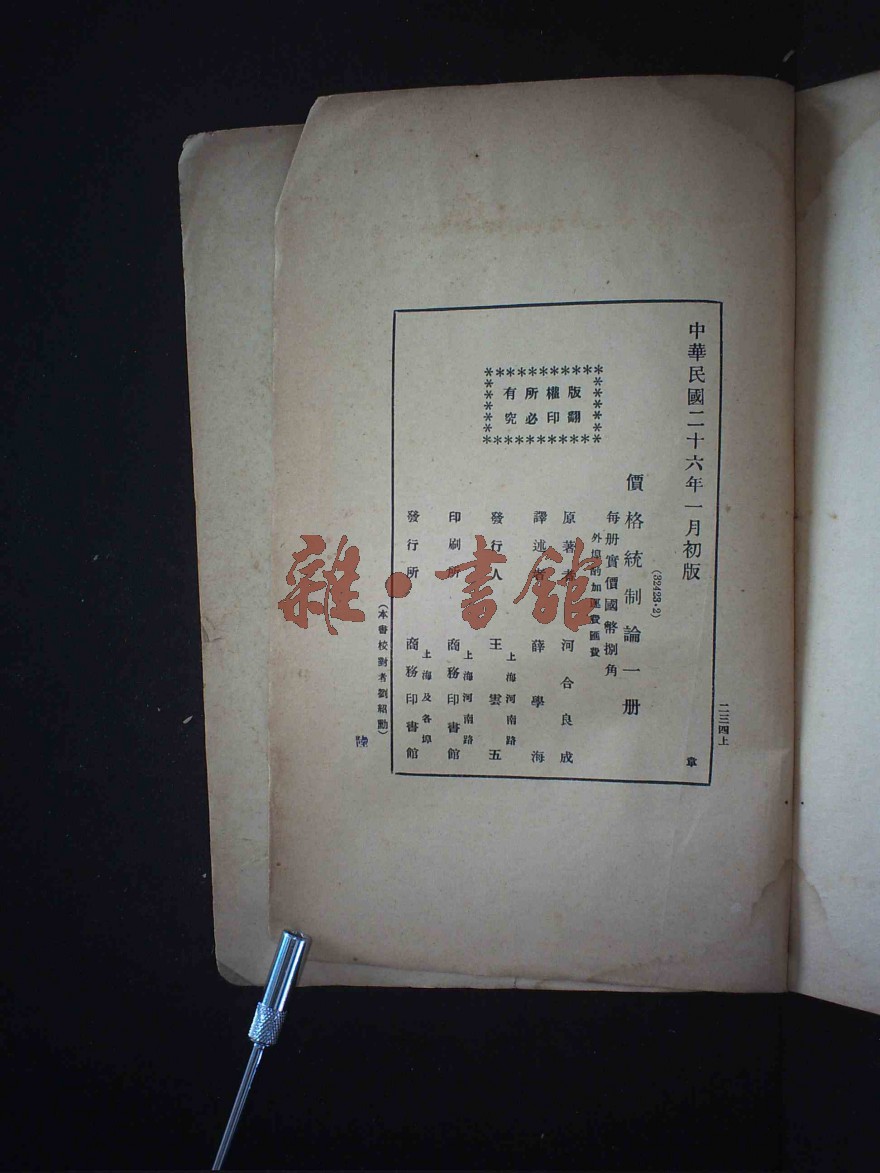 中華民國二十六年一月初版
二三四上
章
版權所有
翻印必究
(32423·2)
價格統制論一册
每册實價國幣捌角
外埠酌加運費匯費
原著者 河合良成
譯述者 薛學海
上海河南路
發行人 王雲五
上海河南路
印刷所 商務印書館
上海及各埠
發行所 商務印書館
(本書校對者劉紹勳)
雜·書館